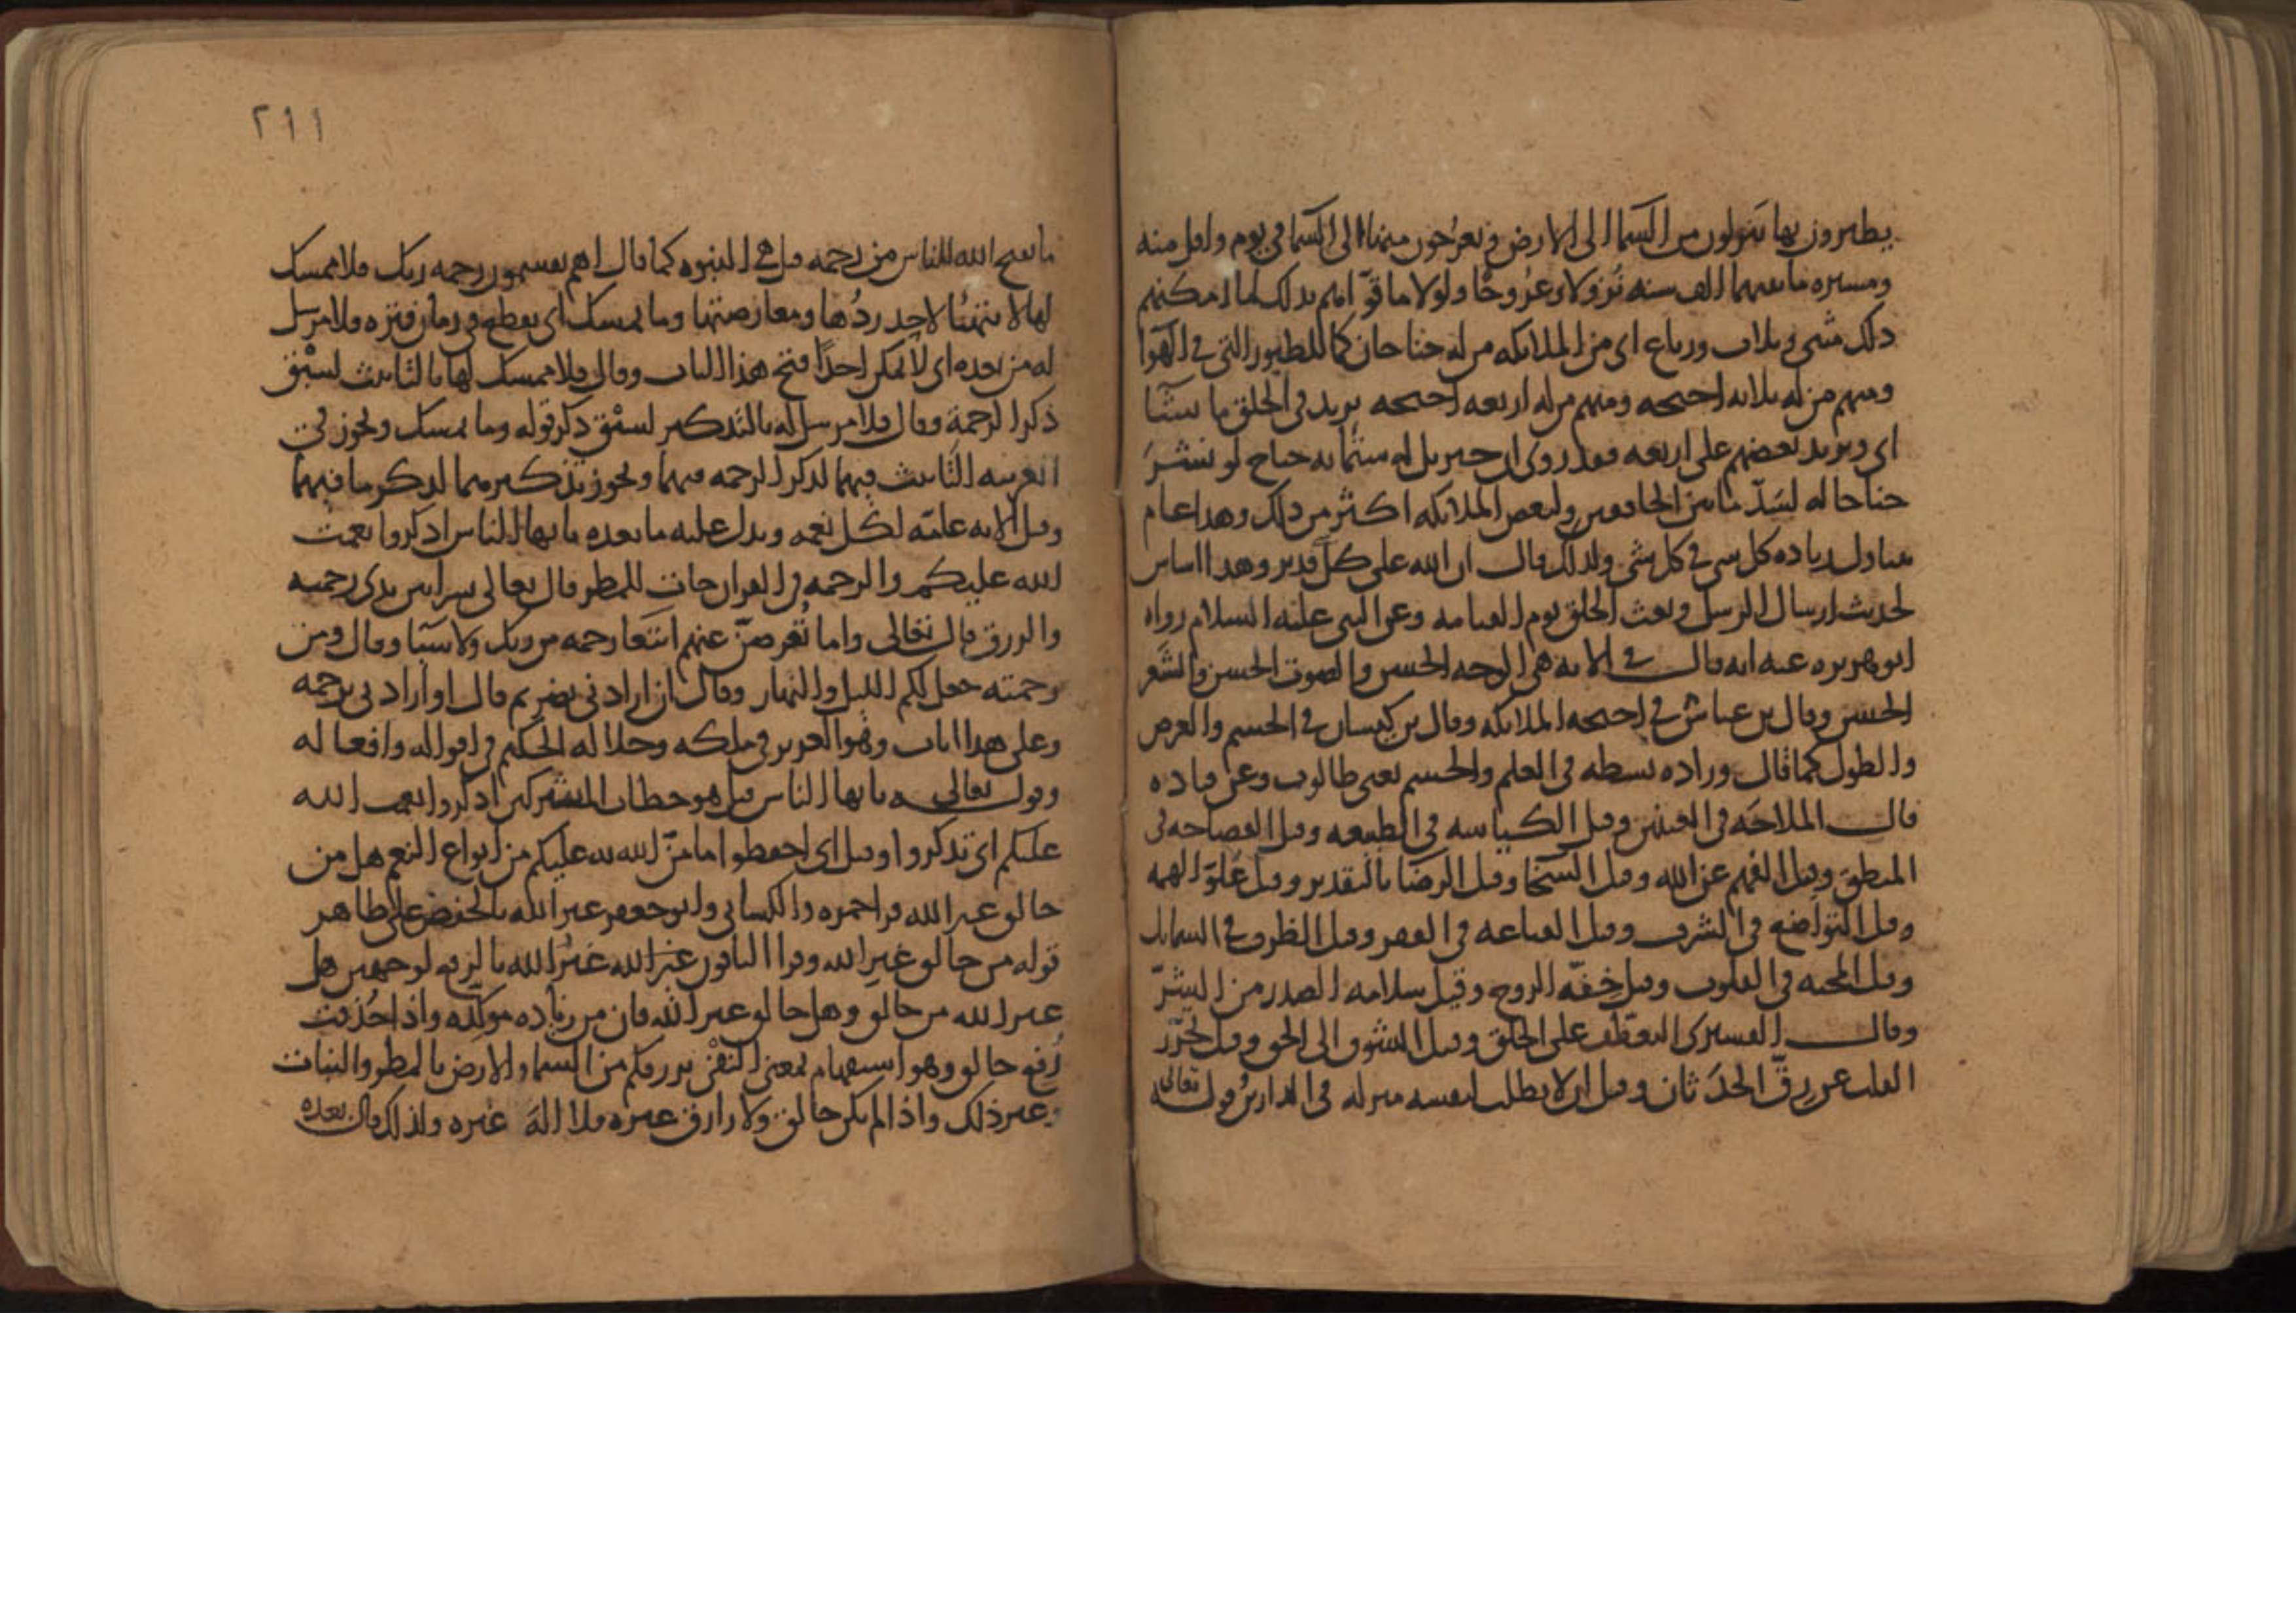 يطيرون بها ينزلون من السما الى الارض ويعرجون منها الى السما في يوم واقل منه
ومسيره ما بينهما الف سنه نزولا وعروجا ولولا ما قواهم بذلك لما امكنهم
ذلك مثنى وثلاث ورباع اى من الملائكه من له جناحان كما للطيور التي في الهوا
ومنهم من له ثلاثه اجنحه ومنهم من له اربعه اجنحه يزيد في الخلق ما يشا
اى ويزيد بعضهم على اربعه فقد روى ان جبريل له ستمائه جناح لو نشر
جناحا له لسد ما بين الخافقين ولبعض الملائكه اكثر من ذلك وهذا عام
يتناول زياده كل شي في كل شي ولذلك قال ان الله على كل قدير وهدا
لحديث ارسال الرسل وبعث الخلق يوم القيامه وعن النبي عليه السلام رواه
ابو هريره عنه انه قال في الايه هي الوجه الحسن والصوت الحسن والشعر
الحسن وقال بن عباس في اجنحه الملائكه وقال بن كيسان في الجسم والعرض
والطول كما قال وزاده بسطه في العلم والجسم يعني طالوت وعن قتاده
قال الملاحه في العينين وقيل الكياسه في الطبيعه وقيل الفصاحه في
المنطق وقيل الفهم عن الله وقيل السخا وقيل الرضا بالتقدير وقيل علو الهمه
وقيل التواضع في الشرف وقيل القناعه في الفقر وقيل الظرف في الشمائل
وقيل المحبه في القلوب وقيل خفه الروح وقيل سلامه الصدر من الشر
وقال القشيرى التعطف على الخلق وقيل الشوق الى الحق وقيل تحرر
القلب عن رق الحدثان وقيل ان لا يطلب لنفسه منزله في الدارين قوله تعالى
٢١١
ما يفتح الله للناس من رحمه قيل هي النبوه كما قال اهم يقسمون رحمه ربك فلا ممسك
لها لا يتهيا لاحد ردها ومعارضتها وما يمسك اى يعطه في زمان فتره فلا مرسل
له من بعده اى لا يمكن احدا فتح هذا الباب وقال فلا ممسك لها بالتانيث لسبق
ذكر الرحمة وقال فلا مرسل له بالتذكير لسبق ذكر قوله وما يمسك ويجوز في
العربيه التانيث فيهما لذكر الرحمه فيهما ويجوز تذكيرهما لذكر ما فيهما
وقيل الايه عامه لكل نعمه ويدل عليه ما بعده يا ايها الناس اذكروا نعمت
الله عليكم والرحمه في القران جات للمطر قال تعالى بشرا بين يدى رحمته
والرزق قال تعالى واما تعرضن عنهم ابتغا رحمه من ربك ولا سببا وقال ومن
رحمته جعل لكم الليل والنهار وقال ان ارادني بضر ثم قال او ارادني برحمه
وعلى هذا ايات وهو العزيز في ملكه وجلاله الحكيم في اقواله وافعاله
وقوله تعالى يا ايها الناس قيل هو خطاب المشركين اذكروا نعمت الله
عليكم اى تذكروا وقيل اى احفظوا ما من الله به عليكم من انواع النعم هل من
خالق غير الله قرا حمزه والكسائي وابو جعفر غير الله بالخفض على ظاهر
قوله من خالق غير الله وقرا الباقون غير الله بالرفع لوجهين هل
غير الله من خالق وهل خالق غير الله فان من زياده موكده واذا حذفت
رفع خالق وهو استفهام بمعنى النفي يرزقكم من السما والارض بالمطر والنبات
وغير ذلك واذا لم يكن خالق ولا رازق غيره فلا اله غيره ولذلك قال بعده